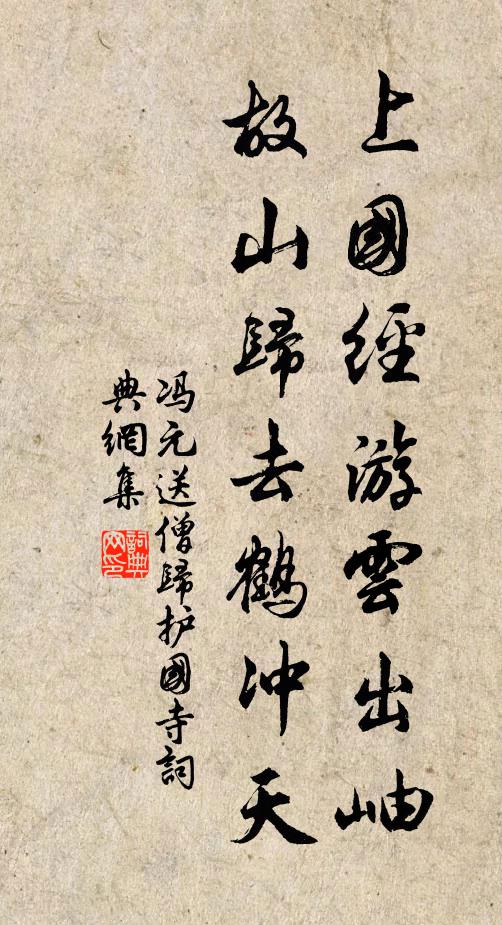 上國經游雲出岫
故山歸去鶴冲天
冯元送僧歸护國寺詞
典網集
詞典
网印